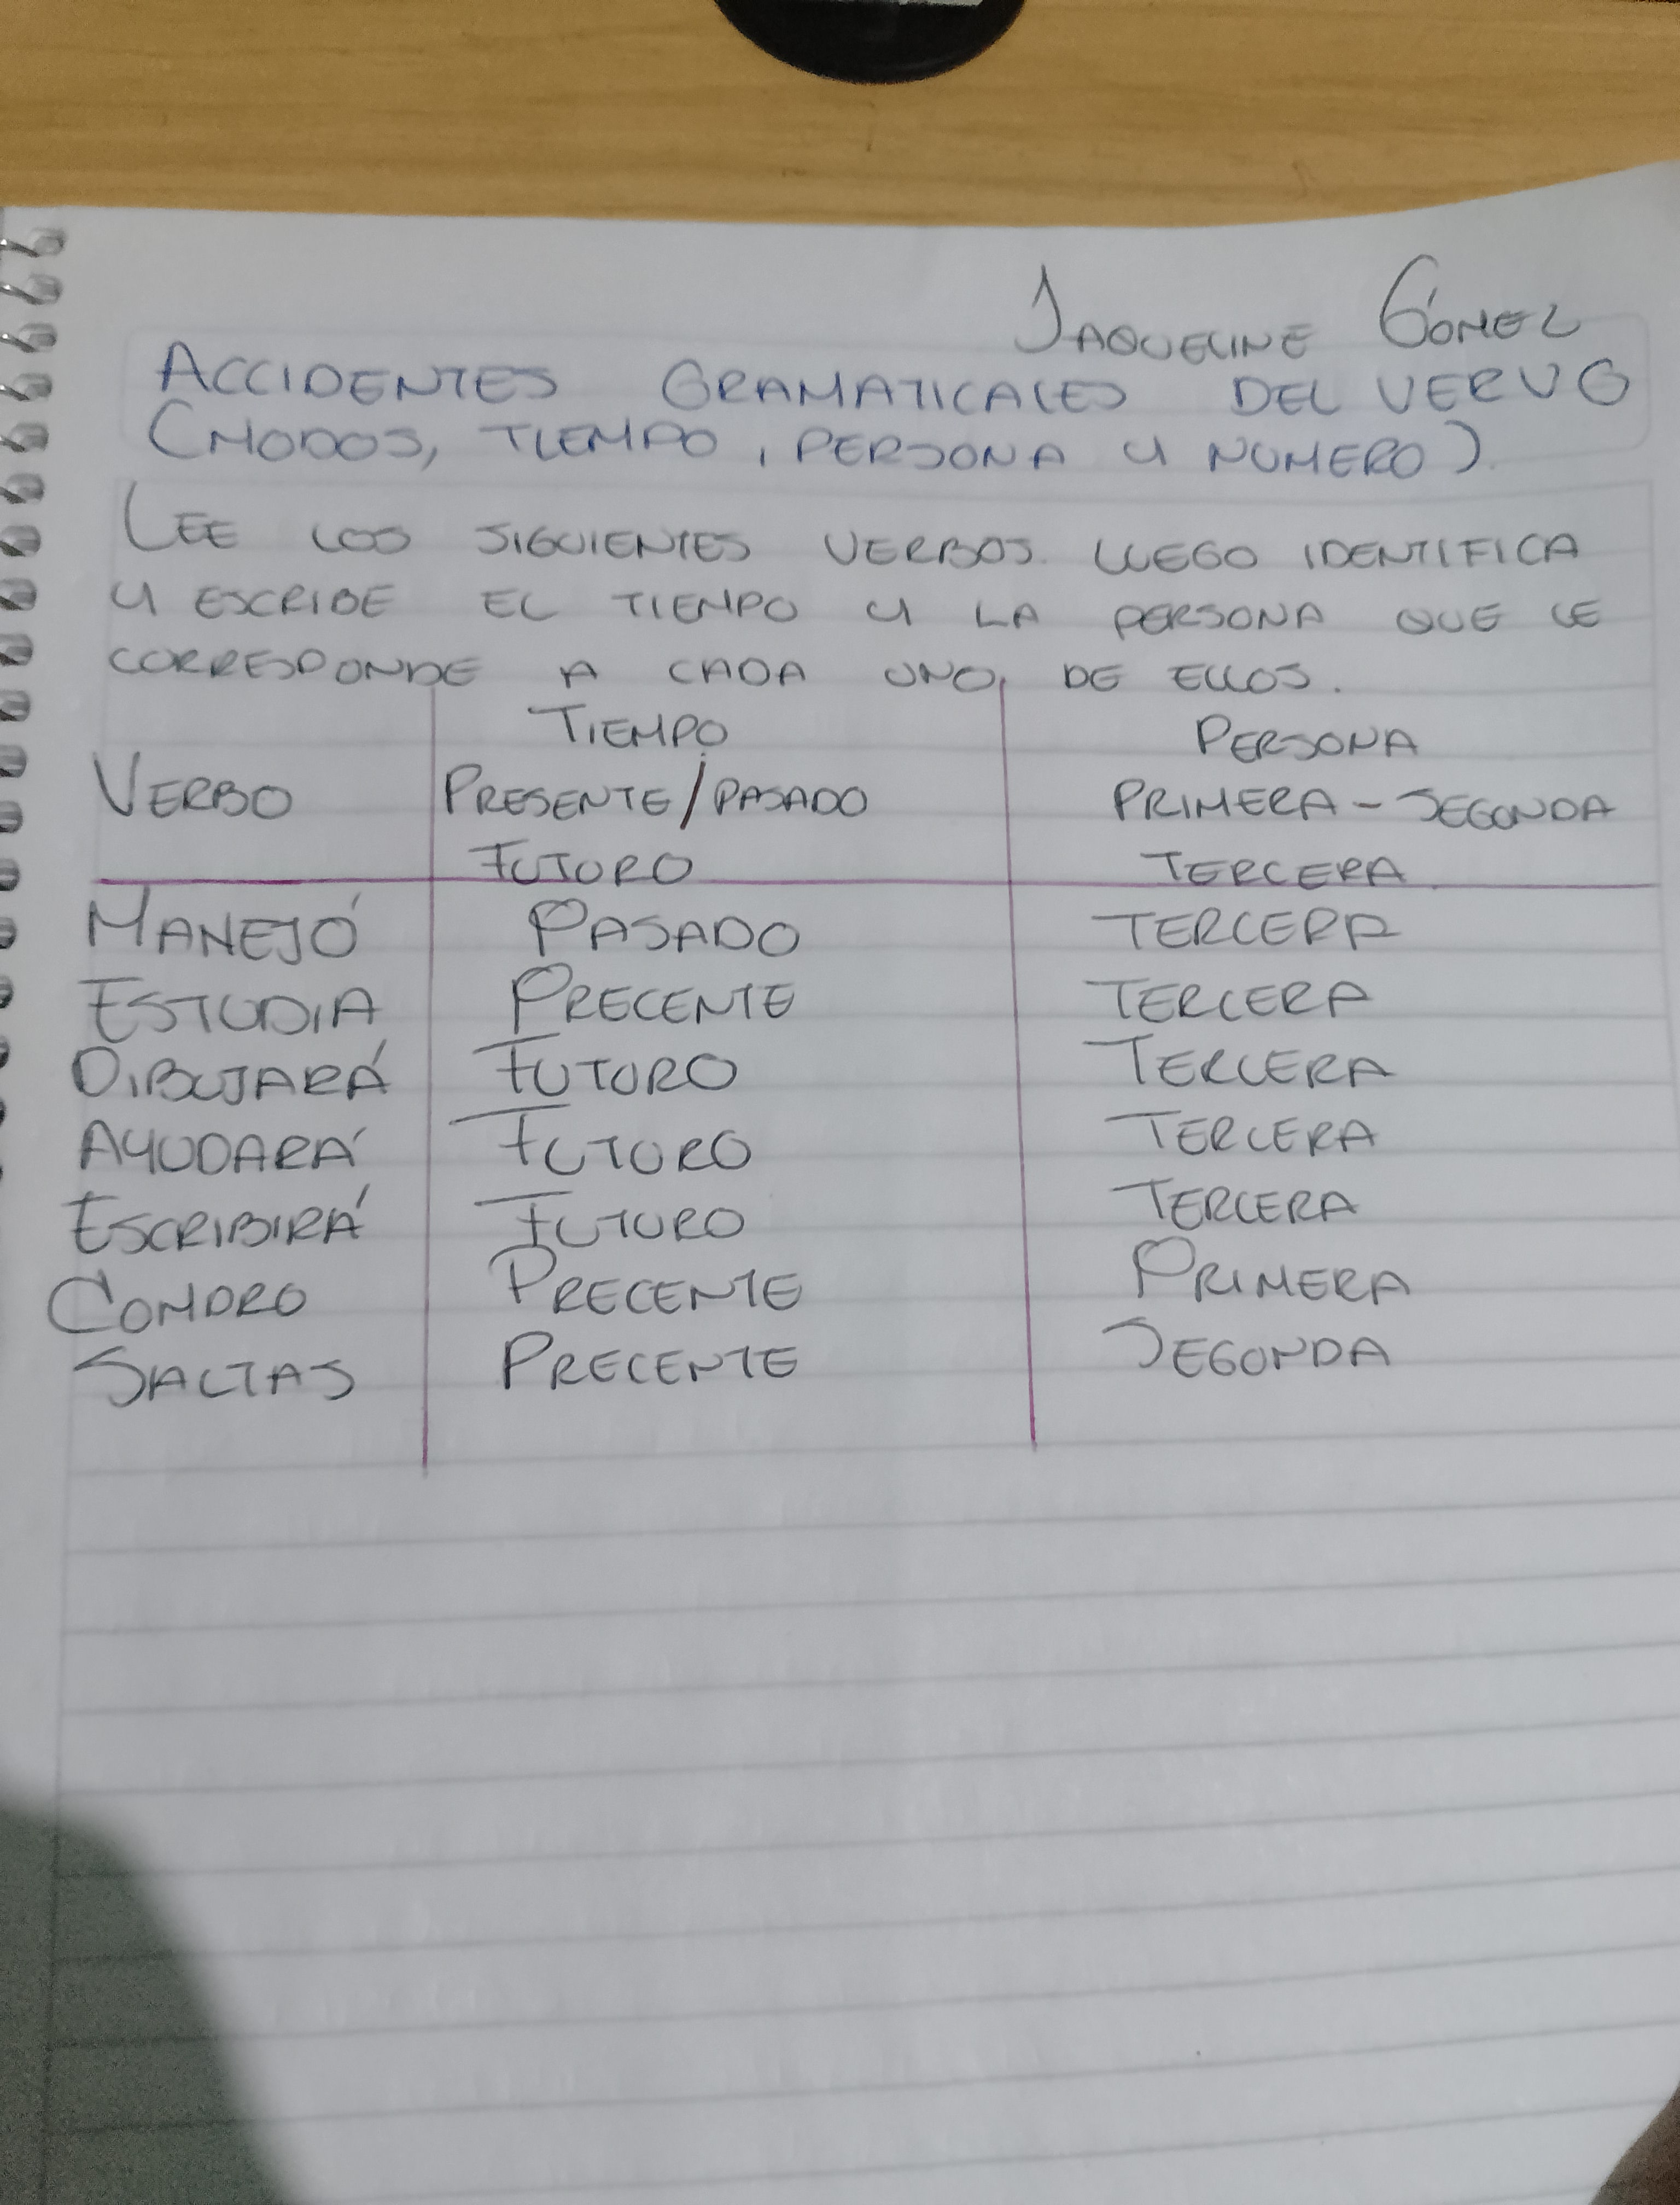 JAQUELINE GÓMEZ
ACCIDENTES GRAMATICALES DEL VERVO
(MODOS, TIEMPO, PERSONA Y NUMERO).
LEE LOS SIGUIENTES VERBOS. LUEGO IDENTIFICA
Y ESCRIBE EL TIEMPO Y LA PERSONA QUE LE
CORRESPONDE A CADA UNO DE ELLOS.
TIEMPO PERSONA
VERBO PRESENTE/PASADO PRIMERA - SEGUNDA
FUTURO TERCERA
MANEJÓ PASADO TERCERA
ESTUDIA PRECENTE TERCERA
DIBUJARÁ FUTURO TERCERA
AYUDARÁ FUTURO TERCERA
ESCRIBIRÁ FUTURO TERCERA
COMPRO PRECENTE PRIMERA
SALTAS PRECENTE SEGUNDA